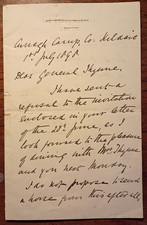 Curragh Camp, Co. Kildare
1st July 1898
Dear General Thynne,
I have sent a
refusal to the invitation
enclosed in your letter
of the 28th June, as I
look forward to the pleasure
of dining with Mrs. Thynne
and you next Monday.
I do not propose to send
a horse from this after all,